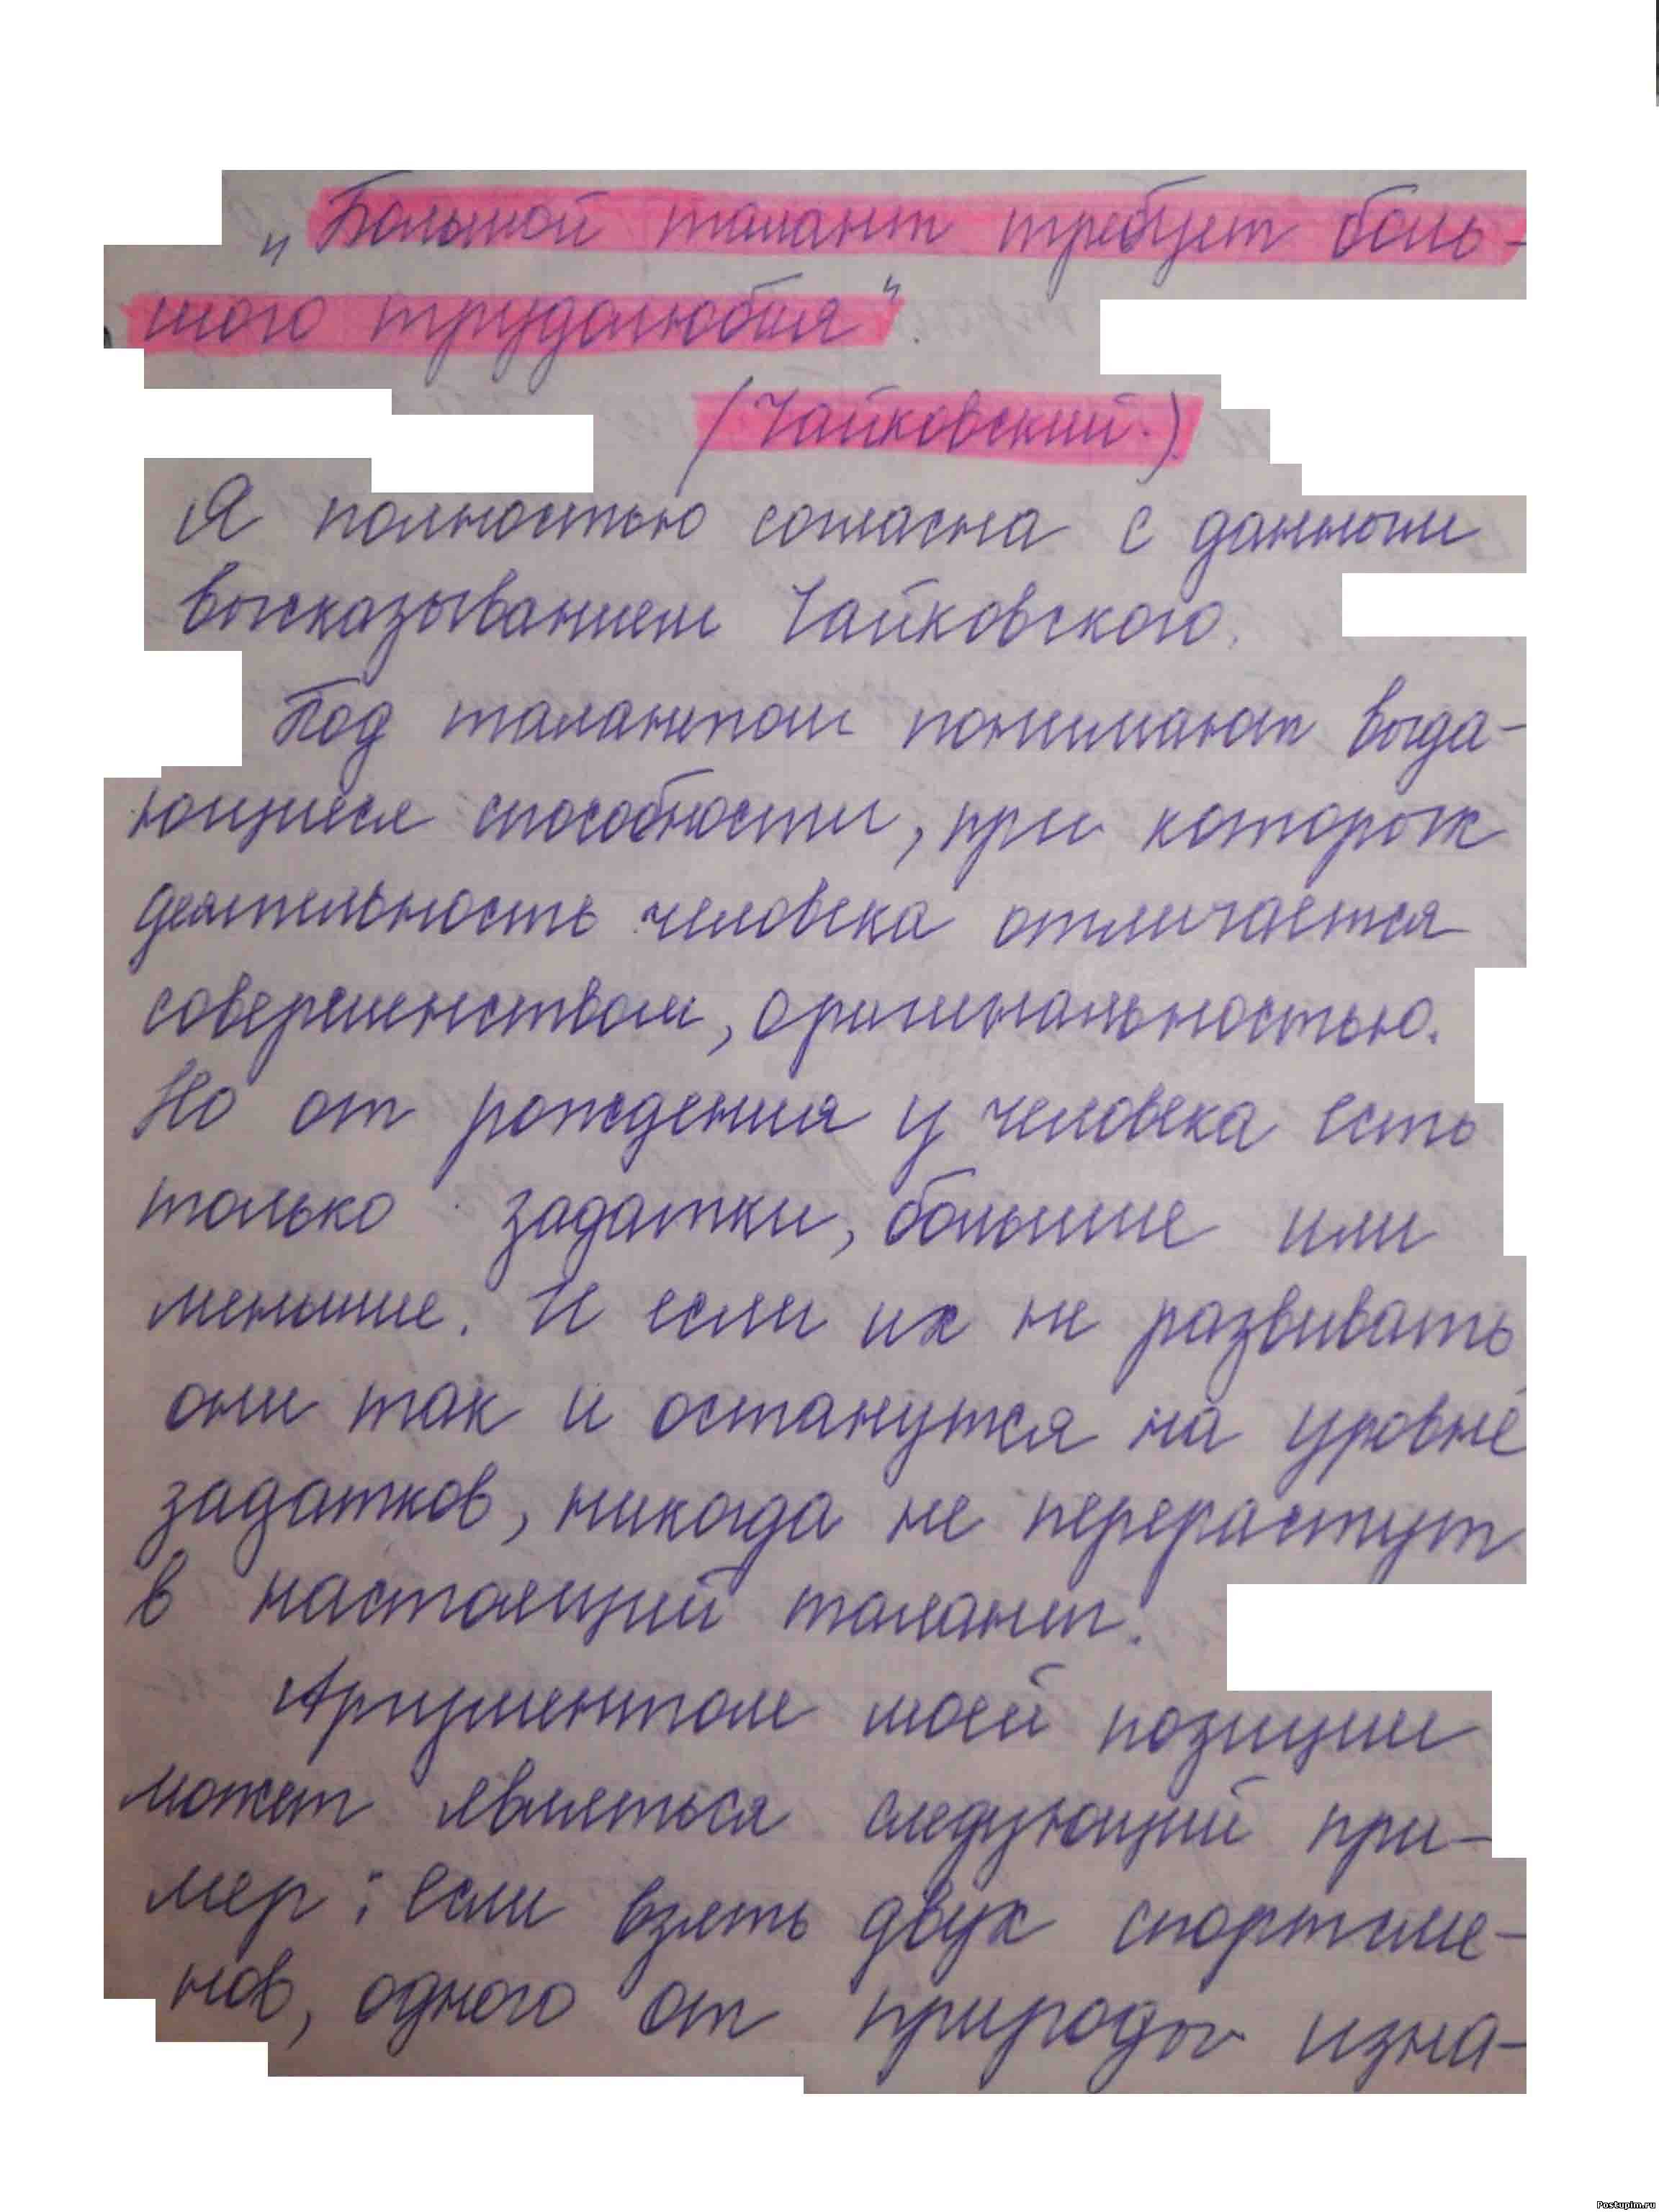 „Большой талант требует боль-
шого трудолюбия".
(Чайковский.)
Я полностью согласна с данным
высказыванием Чайковского.
Под талантом понимают выда-
ющиеся способности, при которых
деятельность человека отличается
совершенством, оригинальностью.
Но от рождения у человека есть
только задатки, большие или
меньшие. И если их не развивать
они так и останутся на уровне
задатков, никогда не перерастут
в настоящий талант.
Аргументом моей позиции
может являться следующий при-
мер: если взять двух спортсме-
нов, одного от природы изна-
Postupim.ru